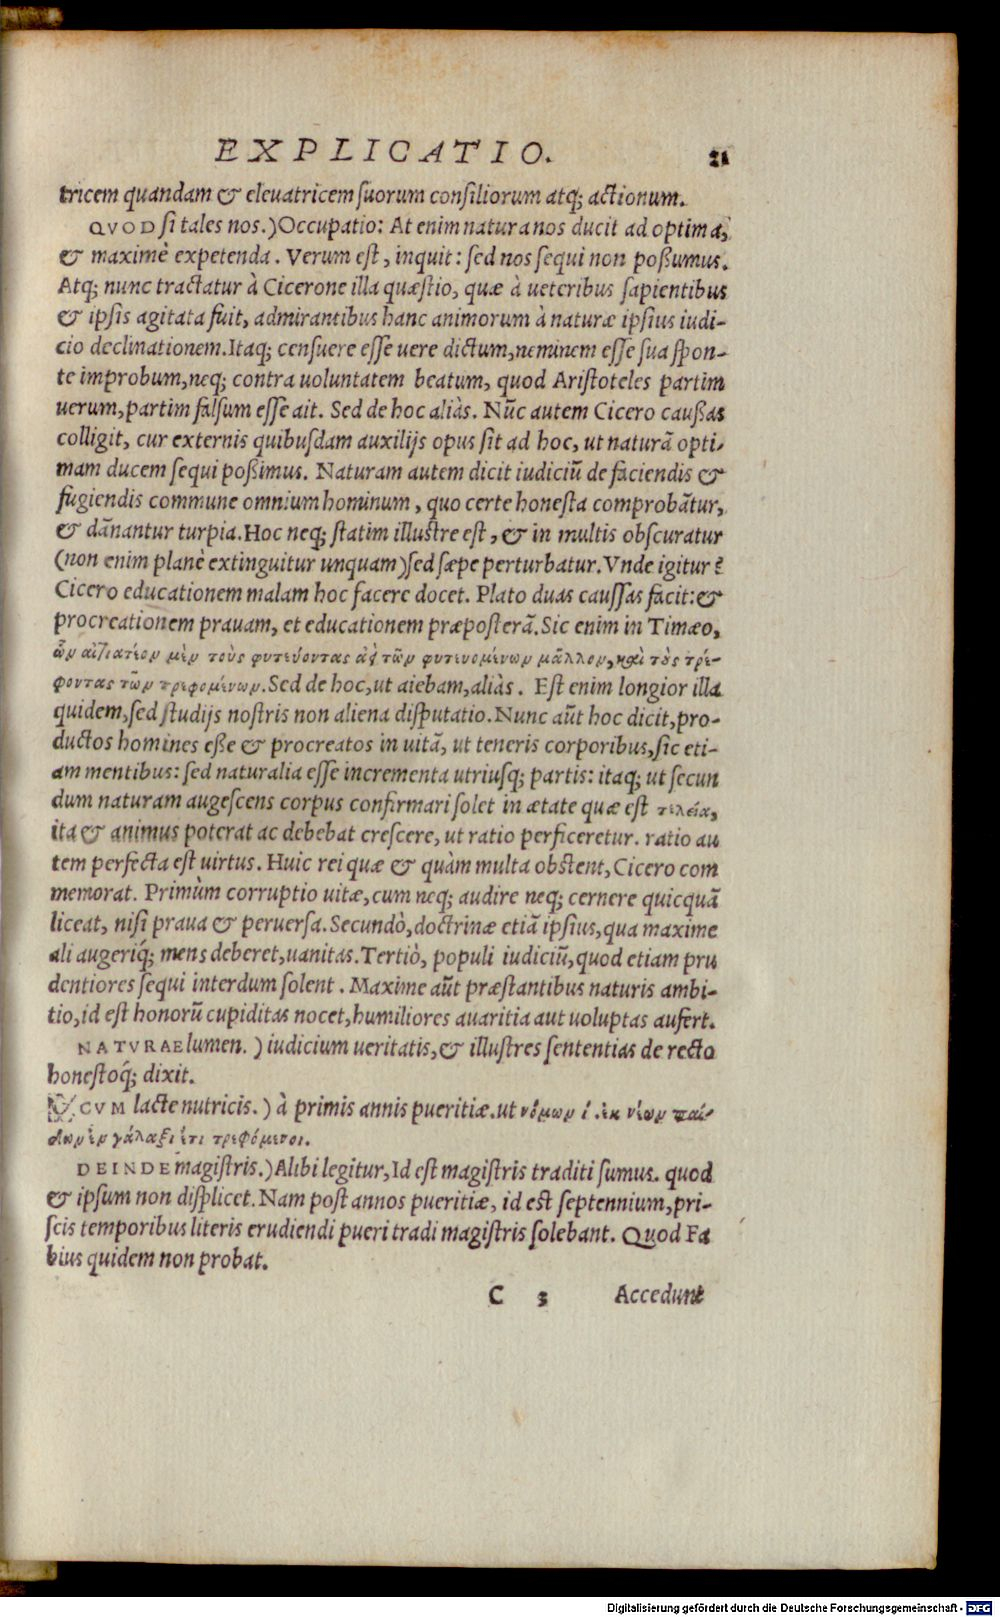 EXPLICATIO. 21
tricem quandam & eleuatricem suorum consiliorum atq; actionum.
QVOD si tales nos.) Occupatio: At enim natura nos ducit ad optima,
& maximè expetenda. Verum est, inquit: sed nos sequi non possumus.
Atq; nunc tractatur à Cicerone illa quæstio, quæ à ueteribus sapientibus
& ipsis agitata fuit, admirantibus hanc animorum à naturæ ipsius iudi-
cio declinationem. Itaq; censuere esse uere dictum, neminem esse sua spon-
te improbum, neq; contra uoluntatem beatum, quod Aristoteles partim
uerum, partim falsum esse ait. Sed de hoc aliàs. Nũc autem Cicero caussas
colligit, cur externis quibusdam auxilijs opus sit ad hoc, ut naturã opti-
mam ducem sequi possimus. Naturam autem dicit iudiciũ de faciendis &
fugiendis commune omnium hominum, quo certe honesta comprobãtur,
& dãnantur turpia. Hoc neq; statim illustre est, & in multis obscuratur
(non enim planè extinguitur unquam) sed sæpe perturbatur. Vnde igitur?
Cicero educationem malam hoc facere docet. Plato duas caussas facit: &
procreationem prauam, et educationem præposterã. Sic enim in Timæo,
ὧν αἰτιατέον μὲν τοὺς φυτεύοντας ἀεὶ τῶν φυτευομένων μᾶλλον, καὶ τοὺς τρέ-
φοντας τῶν τρεφομένων. Sed de hoc, ut aiebam, aliàs. Est enim longior illa
quidem, sed studijs nostris non aliena disputatio. Nunc aũt hoc dicit, pro-
ductos homines esse & procreatos in uitã, ut teneris corporibus, sic eti-
am mentibus: sed naturalia esse incrementa utriusq; partis: itaq; ut secun
dum naturam augescens corpus confirmari solet in ætate quæ est τελεία,
ita & animus poterat ac debebat crescere, ut ratio perficeretur. ratio au
tem perfecta est uirtus. Huic rei quæ & quàm multa obstent, Cicero com
memorat. Primùm corruptio uitæ, cum neq; audire neq; cernere quicquã
liceat, nisi praua & peruersa. Secundò, doctrinæ etiã ipsius, qua maxime
ali augeriq́; mens deberet, uanitas. Tertiò, populi iudiciũ, quod etiam pru
dentiores sequi interdum solent. Maxime aũt præstantibus naturis ambi-
tio, id est honorũ cupiditas nocet, humiliores auaritia aut uoluptas aufert.
NATVRAE lumen.) iudicium ueritatis, & illustres sententias de recto
honestoq́; dixit.
CVM lacte nutricis.) à primis annis pueritiæ. ut νόμων ί. ἐκ νέων παί-
δων ἐν γάλαξι ἔτι τρεφόμενοι.
DEINDE magistris.) Alibi legitur, Id est magistris traditi sumus. quod
& ipsum non displicet. Nam post annos pueritiæ, id est septennium, pri-
scis temporibus literis erudiendi pueri tradi magistris solebant. Quod Fa
bius quidem non probat.
C 3 Accedunt
Digitalisierung gefördert durch die Deutsche Forschungsgemeinschaft - DFG